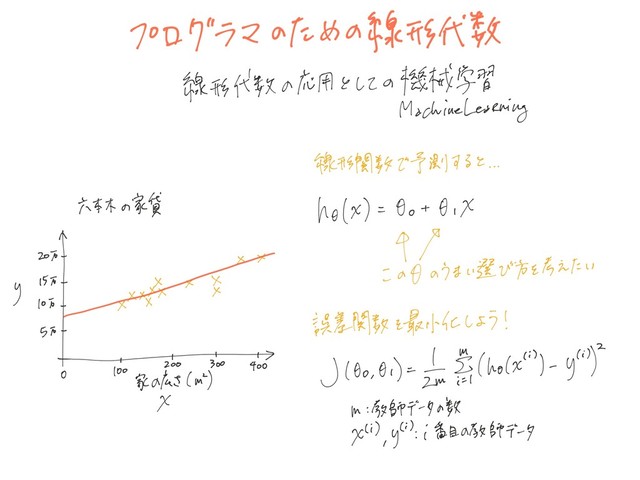 プログラマのための線形代数
線形代数の応用としての機械学習
Machine Learning
線形関数で予測すると...
六本木の家賃
hθ(x) = θ0 + θ1x
このθのうまい選び方を考えたい
20万
15万
10万
5万
y
0 100 200 300 400
家の広さ(m²)
x
誤差関数を最小化しよう!
J(θ0,θ1) = 1/2m Σ_{i=1}^{m} (hθ(x^(i)) - y^(i))²
m:教師データの数
x^(i), y^(i):i番目の教師データ